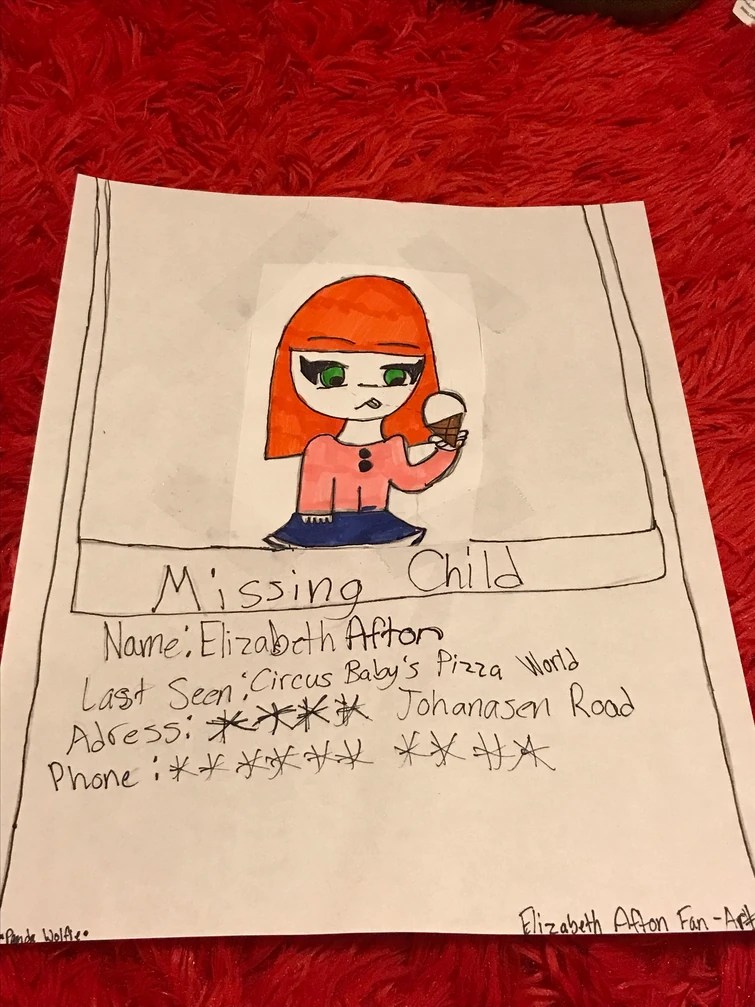 Missing Child
Name: Elizabeth Afton
Last Seen: Circus Baby's Pizza World
Adress: **** Johanasen Road
Phone: ****** ****
Elizabeth Afton Fan-Art
•Panda Wolfie•